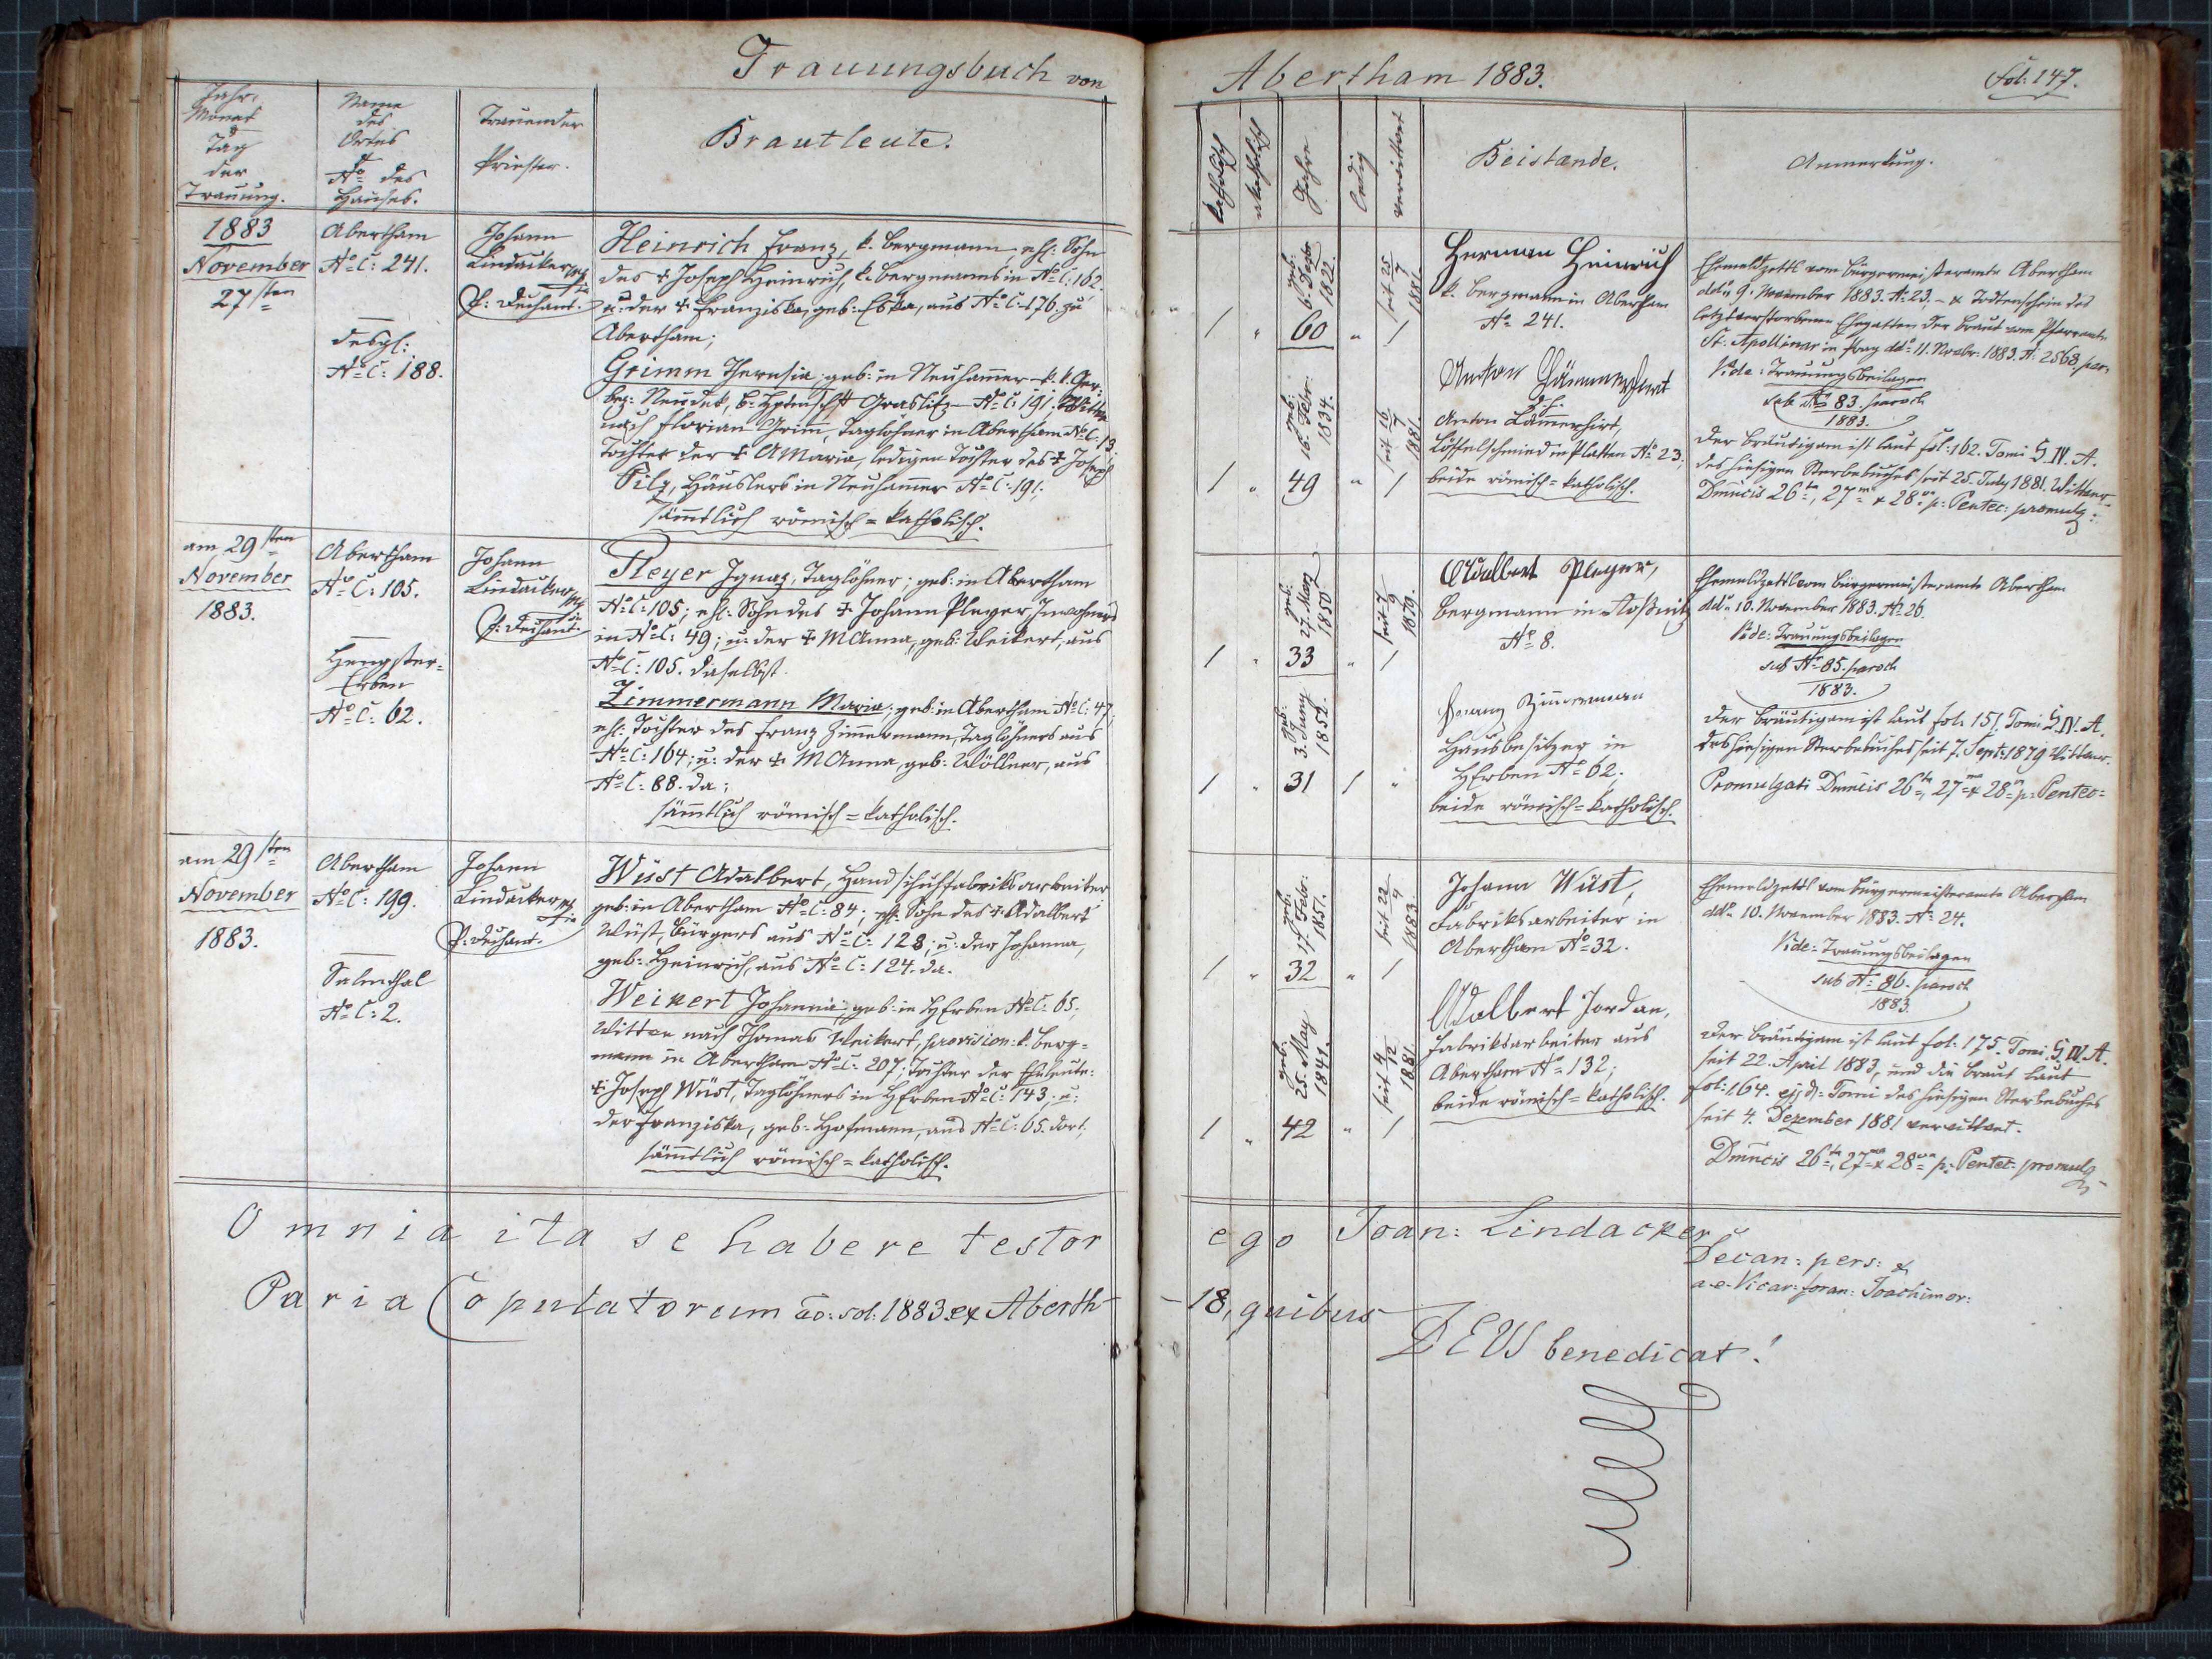 Trauungsbuch von
Abertham 1883.
Fol: 147.
Jahr,
Monat
&
Tag
der
Trauung.
Name
des
Ortes
&
No des
Hauses.
Trauender
Priester.
Brautleute.
katholisch
akatholisch
Jahre
ledig
verwittwet
Beistænde.
Anmerkung.
1883
November
27sten
Abertham
No C: 241.
desgl:
No C: 188.
Johann
Lindacker
P: Dechant.
Heinrich Franz, k. Bergmann, ehl: Sohn
des + Joseph Heinrich, k. Bergmanns in No C: 162.
u: der + Franziska, geb: Eska, aus No C: 176. zu
Abertham;
Grimm Theresia, geb: in Neuhammer k. k. Ger:
bez: Neudek, Graslitz No C: 191. Wittwe
nach Florian Grimm, Taglöhner in Abertham No C: 13.
Tochter der + AMaria, ledigen Tochter des + Joseph
Pilz, Häuslers in Neuhammer No C: 191.
sämmtlich römisch=katholisch.
geb:
6. Dezbr
1822.
seit 25/7
1881.
1 " 60 " 1
geb:
16. Febr:
1834.
seit 16/7
1881.
1 " 49 " 1
Herman Heinrich
k. Bergmann in Abertham
No 241.
Anton Lämmerhirt
Anton Lämmerhirt,
Löffelschmied in Platten No 23.
beide römisch=katholisch.
Ehemeldzettl vom Bürgermeisteramte Abertham
ddto 9. November 1883. No 23, – & Todtenschein des
letztverstorbenen Ehegatten der Braut vom Pfarramte
St. Apollinar in Prag ddto 11. Novbr: 1883. No 2568. par.
Vide: Trauungsbeilagen
sub No 83. paroch
1883.
Der Bräutigam ist laut fol: 162. Tomi S. IV. A.
des hiesigen Sterbebuches seit 25. July 1881. Wittwer
Dmncis 26ta, 27ma & 28va p: Pentec: promulg:
am 29sten
November
1883.
Abertham
No C: 105.
Hengster=
Erben
No C: 62.
Johann
Lindacker
P: Dechant.
Pleyer Ignaz, Taglöhner; geb: in Abertham
No C: 105; ehl: Sohn des + Johann Pleyer, Inwohners
in No C: 49; u: der + MAnna, geb: Weikert, aus
No C: 105. daselbst.
Zimmermann Maria; geb: in Abertham No C: 47,
ehl: Tochter des Franz Zimmermann, Taglöhners aus
No C: 164; u: der + MAnna, geb: Wöllner, aus
No C: 88. da;
sämmtlich römisch=katholisch.
geb:
27. May
1850
seit 7/9
1879.
1 " 33 " 1
geb:
3. Juny
1852.
1 " 31 1 "
Adalbert Pleyer,
Bergmann in
No 8.
Franz Zimmerman
Hausbesitzer in
HErben No 62.
beide römisch=katholisch.
Ehemeldzettl vom Bürgermeisteramte Abertham
ddto 10. November 1883. No 26.
Vide: Trauungsbeilagen
sub No 85. paroch
1883.
Der Bräutigam ist laut fol: 151. Tomi S. IV. A.
des hiesigen Sterbebuches seit 7. Sept: 1879 Wittwer.
Promulgati Dmncis 26ta, 27ma & 28va p: Pentec=
am 29sten
November
1883.
Abertham
No C: 199.
Salmthal
No C: 2.
Johann
Lindacker
P: Dechant.
Wüst Adalbert, Handschuhfabriksarbeiter
geb: in Abertham No C: 84; ehl: Sohn des + Adalbert
Wüst, Bürgers aus No C: 128; u: der Johanna,
geb: Heinrich, aus No C: 124. da.
Weikert Johanna; geb: in HErben No C: 65,
Wittwe nach Thomas Weikert, provision: k. Berg=
mann in Abertham No C: 207; Tochter der Eheleute:
+ Joseph Wüst, Taglöhners in HErben No C: 143, u:
der Franziska, geb: Hofmann, aus No C: 65. dort,
sämmtlich römisch=katholisch.
geb:
17. Febr:
1851.
seit 22/4
1883
1 " 32 " 1
geb:
25. May
1841.
seit 4/12
1881.
1 " 42 " 1
Johann Wüst,
Fabriksarbeiter in
Abertham No 32.
Adalbert Jordan,
Fabriksarbeiter aus
Abertham No 132;
beide römisch=katholisch.
Ehemeldzettl vom Bürgermeisteramte Abertham
ddto 10. November 1883. No 24.
Vide: Trauungsbeilagen
sub No 86. paroch
1883.
Der Bräutigam ist laut fol: 175. Tomi S. IV. A.
seit 22. April 1883, und die Braut laut
fol: 164. ejsd: Tomi des hiesigen Sterbebuches
seit 4. Dezember 1881 verwittwet.
Dmncis 26ta, 27ma & 28va p: Pentec: promulg
Omnia ita se habere testor ego Joan: Lindacker
Decan: pers: &
a. e. Vicar: foran: Joachimov:
Paria Copulatorum ao: sol: 1883 ex Aberth – 18, quibus
DEUS benedicat!